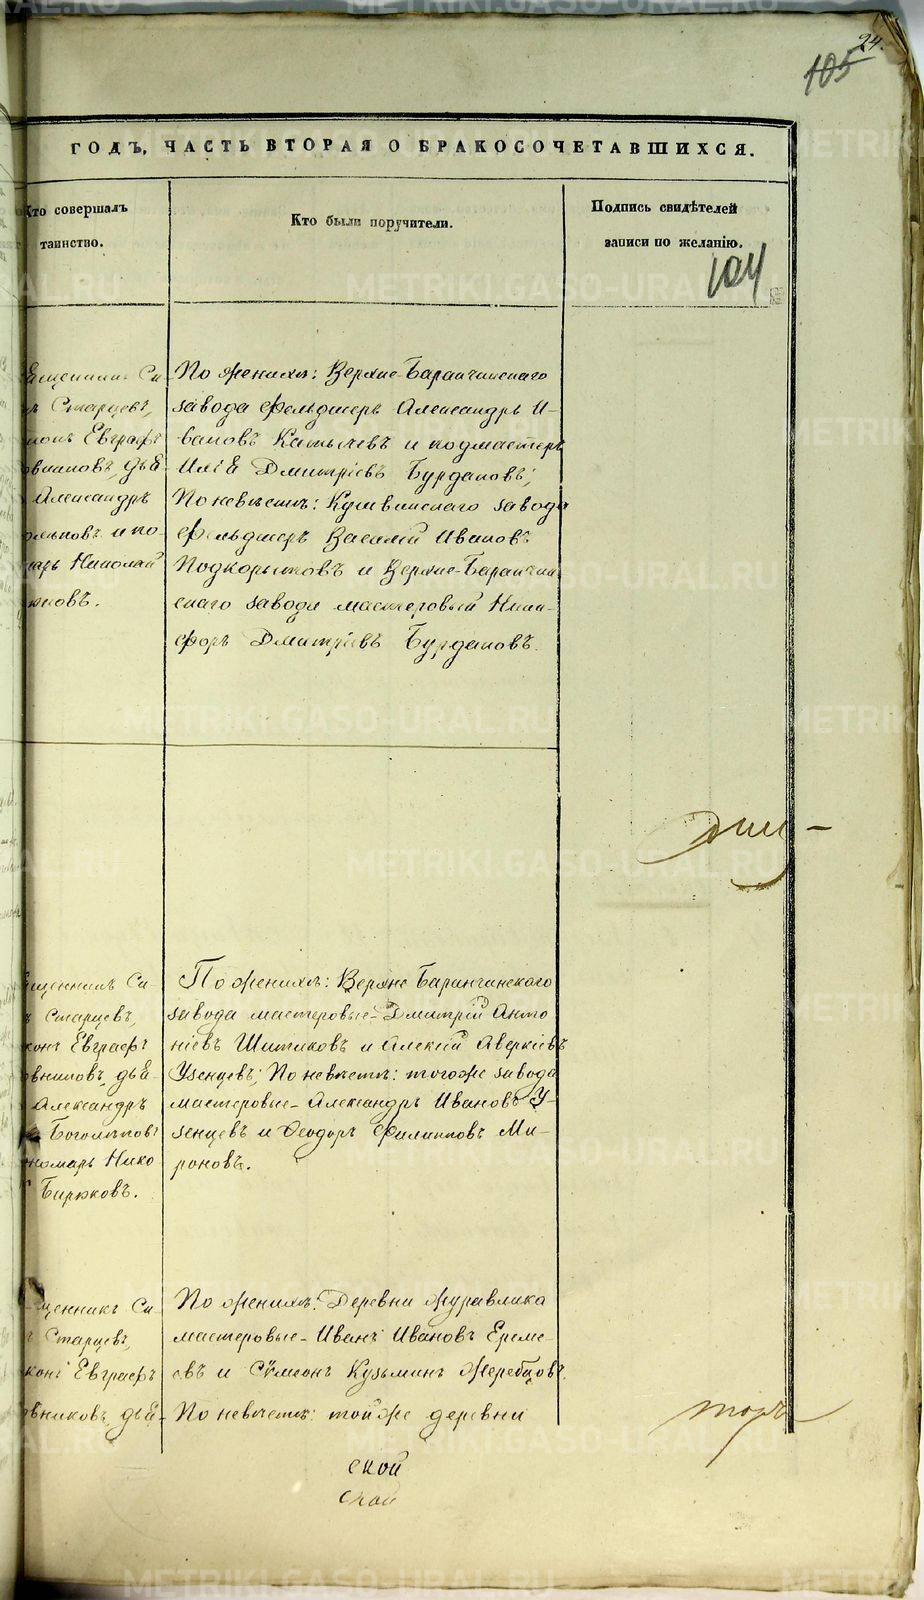 24.
105
ГОДЪ, ЧАСТЬ ВТОРАЯ О БРАКОСОЧЕТАВШИХСЯ.
Кто совершалъ
таинство.
Кто были поручители.
Подпись свидѣтелей
записи по желанію.
104
щенникъ Си
Старцевъ,
Евграфъ
овниковъ, дья-
Александръ
и по-
марь Николай
По женихѣ: Верхне-Баранчинскаго
завода фельдшеръ Александръ И-
вановъ и подмастеръ
Илія Дмитріевъ Бурдаковъ;
По невѣстѣ: Кушвинскаго завода
фельдшеръ Василій Ивановъ
Подкорытовъ и Верхне-Баранчин
скаго завода мастеровый Ники-
форъ Дмитріевъ Бурдаковъ.
щенникъ Си-
Старцевъ,
конъ Евграфъ
вниковъ, дья-
Александръ
Боголѣповъ
номарь Нико
Бирюковъ.
По женихѣ: Верхне Баранчинскаго
завода мастеровые- Дмитрій Анто
ніевъ и Алексій Аверкіевъ
Узенцевъ; По невѣстѣ: тогоже завода
мастеровые- Александръ Ивановъ У-
зенцевъ и Ѳеодоръ Филипповъ Ми-
роновъ.
щенникъ Си
Старцевъ,
конъ Евграфъ
вниковъ, дья-
По женихѣ: Деревни Журавлика
мастеровые- Иванъ Ивановъ Ереме-
евъ и Сѵмеонъ Кузьминъ Жеребцовъ.
По невѣстѣ: тойже деревни
ской
ской
METRIKI.GASO-URAL.RU